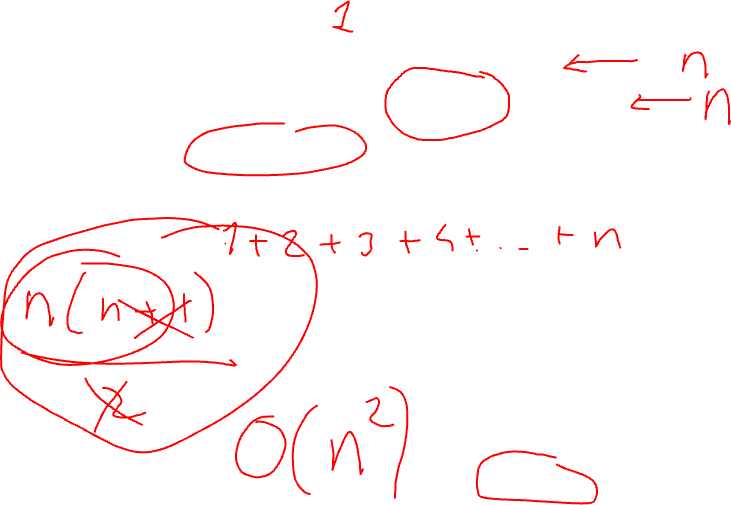 1
← n
← n
1 + 2 + 3 + 4 + ... + n
n(n+1)
2
O(n²)